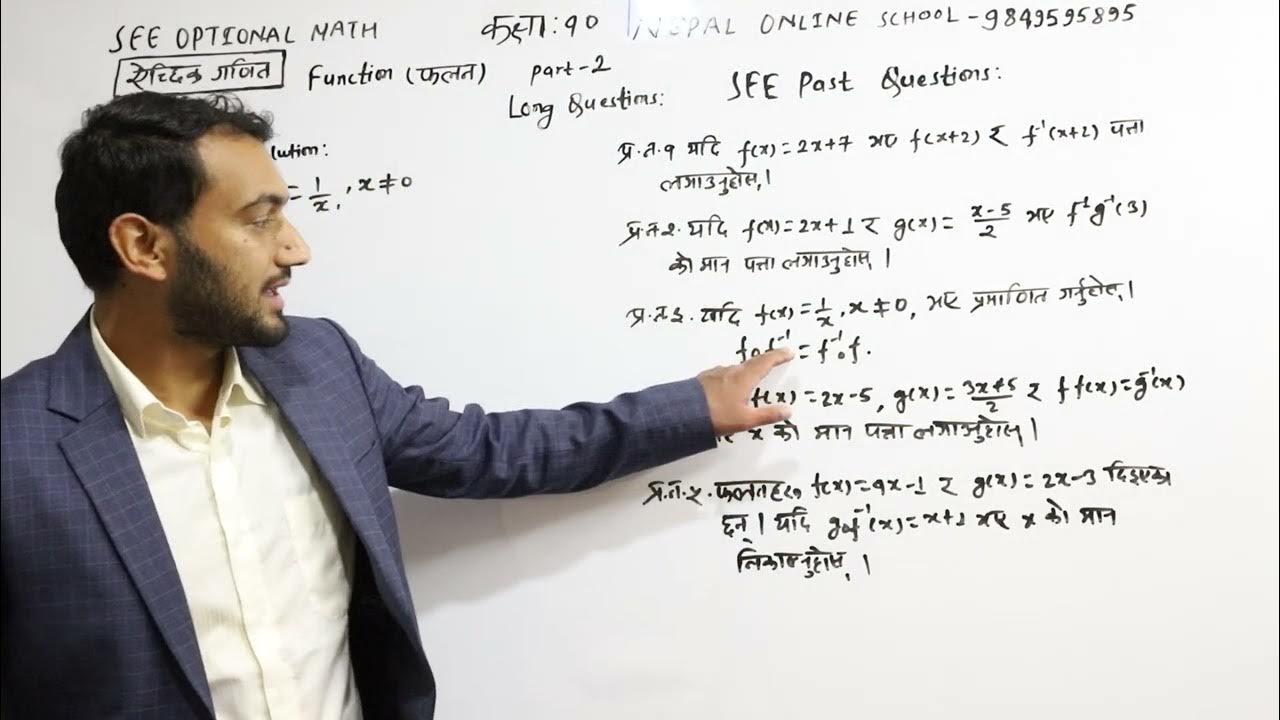 SEE OPTIONAL MATH
कक्षा: १०
NEPAL ONLINE SCHOOL - 9849595895
ऐच्छिक गणित
Function (फलन)
Part-2
Long Questions:
SEE Past Questions:
lution:
= 1/x, x ≠ 0
प्र.न.१ यदि f(x) = 2x+7 भए f(x+2) र f⁻¹(x+2) पत्ता
लगाउनुहोस् ।
प्र.न.२. यदि f(x) = 2x+1 र g(x) = (x-5)/2 भए f⁻¹g⁻¹(3)
को मान पत्ता लगाउनुहोस् ।
प्र.न.३. यदि f(x) = 1/x, x ≠ 0, भए प्रमाणित गर्नुहोस् ।
fof⁻¹ = f⁻¹of.
f(x) = 2x-5, g(x) = (3x+5)/2 र ff(x) = g⁻¹(x)
x को मान पत्ता लगाउनुहोस् ।
प्र.न.५. फलनहरू f(x) = 4x-1 र g(x) = 2x-3 दिइएका
छन् । यदि gof⁻¹(x) = x+1 भए x को मान
निकाल्नुहोस् ।